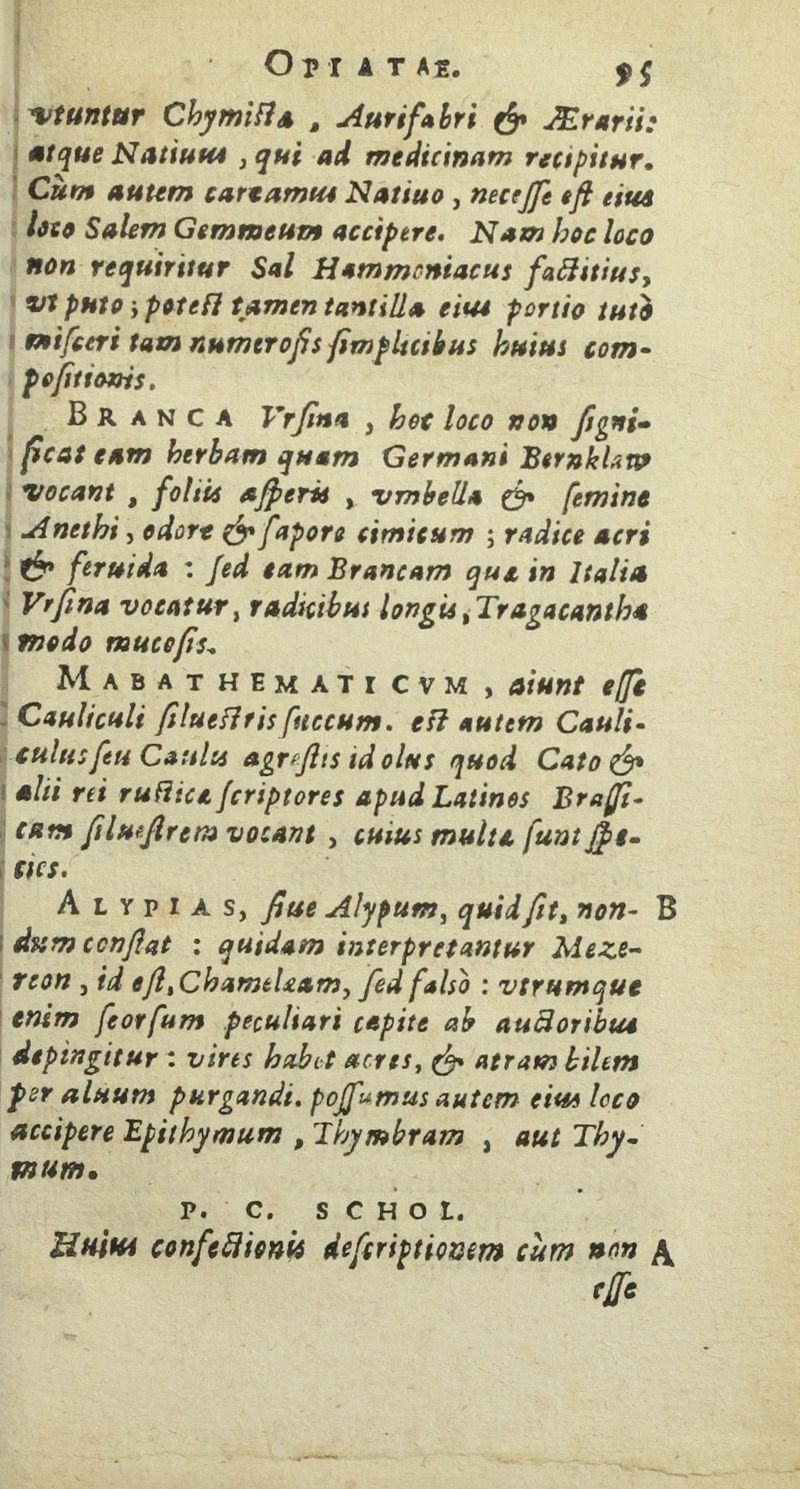 OPIATAE. 95
vtuntur Chymistæ, Aurifabri & Ærarii:
atque Natiuus, qui ad medicinam recipitur.
Cùm autem careamus Natiuo, necesse est eius
loco Salem Gemmeum accipere. Nam hoc loco
non requiritur Sal Hammoniacus factitius,
vt puto; potest tamen tantilla eius portio tutò
misceri tam numerosis simplicibus huius com-
positionis.
BRANCA Vrsina, hoc loco non signi-
ficat eam herbam quam Germani Bernklaw
vocant, foliis asperis, vmbella & semine
Anethi, odore & sapore cimicum; radice acri
& feruida: sed eam Brancam quæ in Italia
Vrsina vocatur, radicibus longis, Tragacanthæ
modo mucosis.
MABATHEMATICVM, aiunt esse
Cauliculi siluestris succum. est autem Cauli-
culus seu Caulis agrestis id olus quod Cato &
alii rei rusticæ scriptores apud Latinos Brassi-
cam siluestrem vocant, cuius multæ sunt spe-
cies.
ALYPIAS, siue Alypum, quid sit, non- B
dum constat: quidam interpretantur Meze-
reon, id est, Chamelæam, sed falsò: vtrumque
enim seorsum peculiari capite ab auctoribus
depingitur: vires habet acres, & atram bilem
per aluum purgandi. possumus autem eius loco
accipere Epithymum, Thymbram, aut Thy-
mum.
P. C. SCHOL.
Huius confectionis descriptionem cùm non A
esse